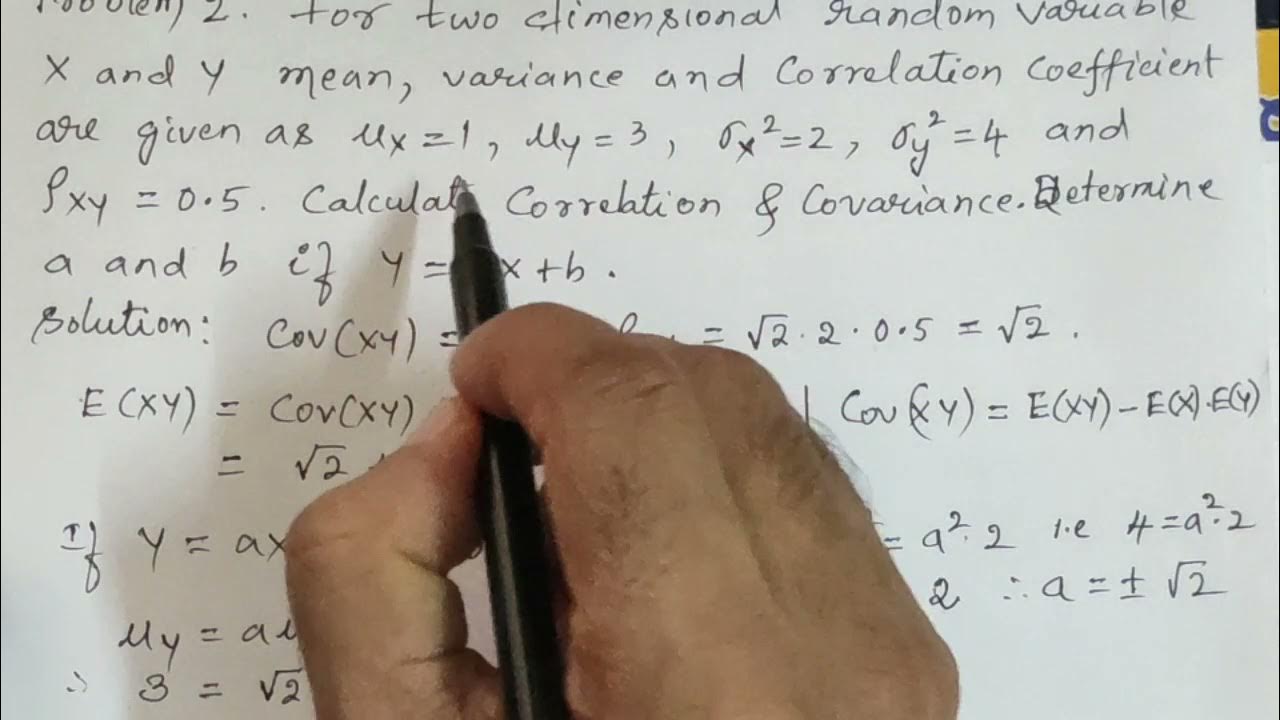 2. For two dimensional random variable
X and Y mean, variance and Correlation Coefficient
are given as μx = 1, μy = 3, σx² = 2, σy² = 4 and
ρxy = 0.5. Calculat Correlation & Covariance. Determine
a and b if Y = x + b.
Solution: Cov(XY) = = √2 · 2 · 0.5 = √2.
E(XY) = Cov(XY) | Cov(XY) = E(XY) - E(X).E(Y)
= √2
If Y = ax = a²·2 i.e 4 = a²·2
2 ∴ a = ± √2
μy = a
∴ 3 = √2